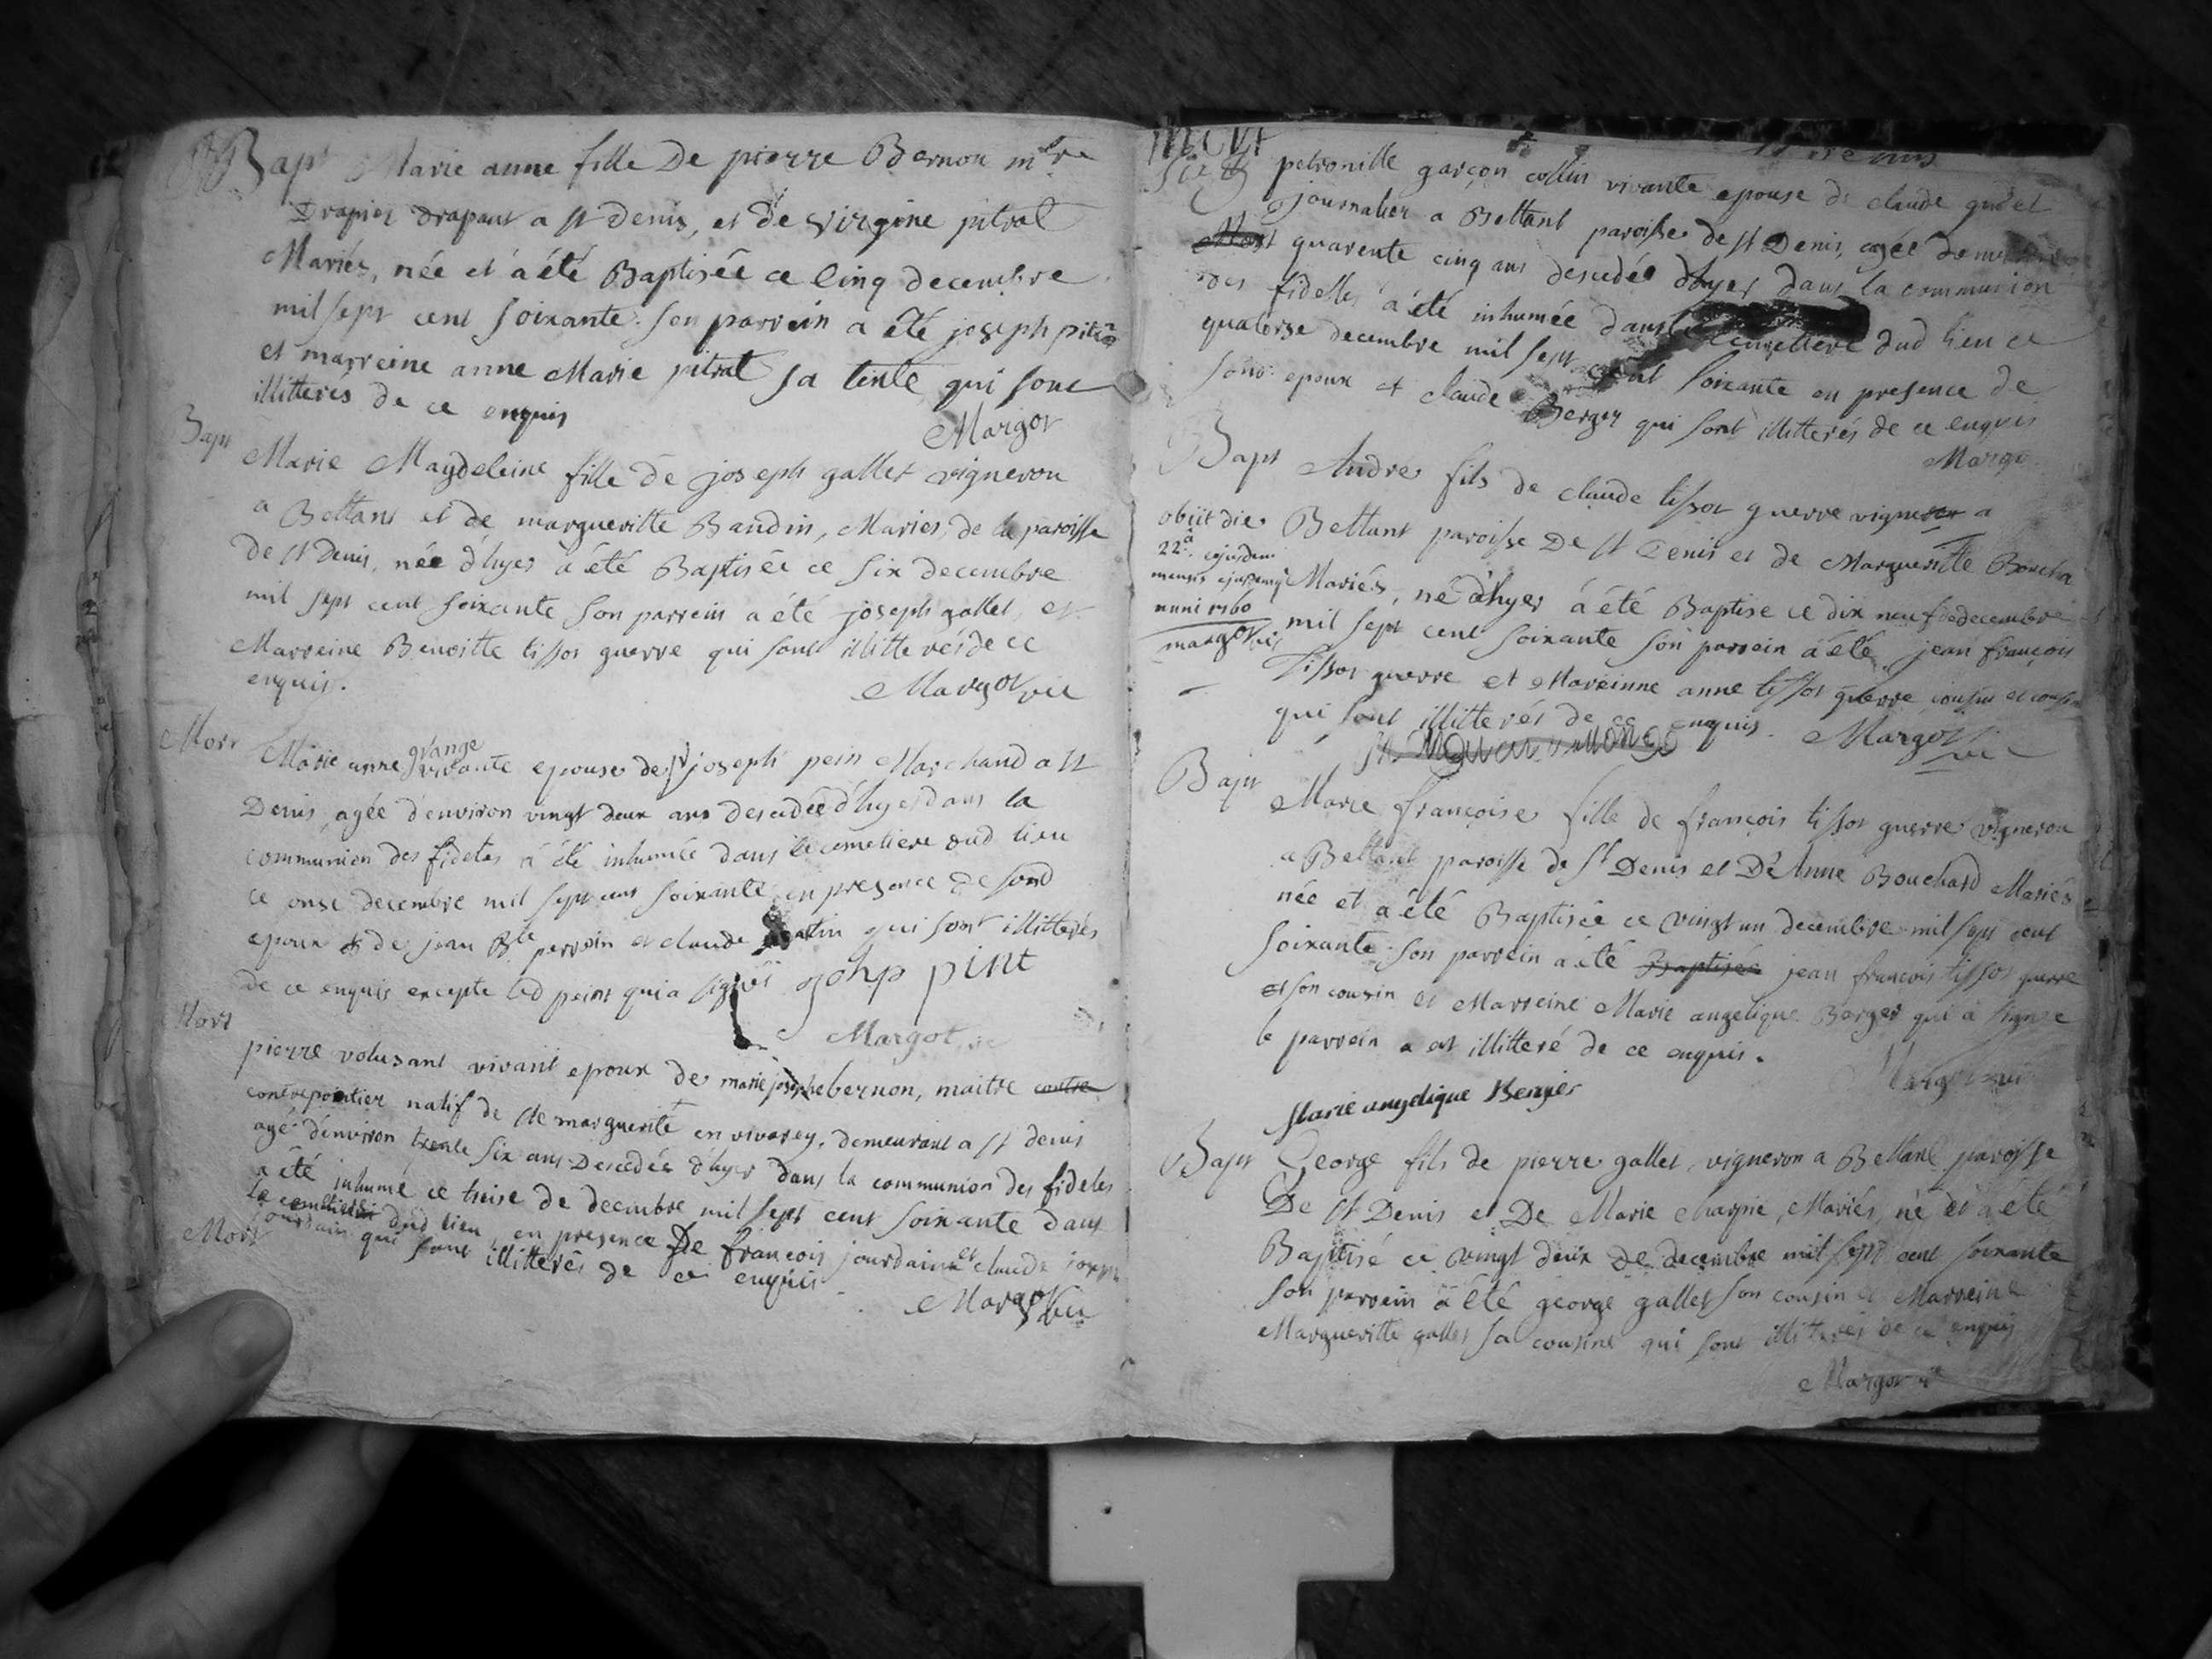 Bapt Marie anne fille De pierre Bernon mtre
Drapier drapant a st Denis, et de virgine pitrat
Mariés, née et a été Baptisée ce Cinq decembre
mil sept cent soixante. son parrein a été joseph
et marreine anne Marie pitrat sa tente qui sont
illitterés de ce enquis
Margot
Bapt
Marie Magdeleine fille de joseph gallet vigneron
a Bettans et de margueritte Baudin, Mariés, de la paroisse
de st Denis, née d'hyer a été Baptisée ce six decembre
mil sept cent soixante son parrein a été joseph gallet, et
Marreine Benoitte tissot guerre qui sont illitterés de ce
enquis.
Margot vic
Mort
grange
Marie anne vivante epouse de sr joseph pein Marchand a st
Denis, agée d'environ vingt deux ans descedée d'hyer dans la
communion des fideles a été inhumée dans le cemetiere dud lieu
ce onse decembre mil sept cent soixante en presence de sond
epoux & de jean Bte perrein et claude qui sont illitterés
de ce enquis excepte led peint qui a signé johp pint
Margot vic
Mort
pierre volusant vivant epoux de marie josephe bernon, maitre contre
contrepointier natif de ste marguerite en vivarey, demeurant a st denis
agé d'environ trente six ans Descedés d'hyer dans la communion des fideles
a été inhumé ce treise de decembre mil sept cent soixante dans
le cemetiere dud lieu, en presence De francois jourdain et claude
Mort
jourdain qui sont illitterés de ce enquis
Margot vic
Mort
petronille garçon collin vivante epouse de claude
journalier a Bettant paroisse de st Denis, agée de
Mort quarente cinq ans descedée d'hyer dans la communion
des fidelles a été inhumée dans le cemettiere dud lieu ce
quatorze decembre mil sept cent soixante en presence de
sond epoux et claude Berger qui sont illitterés de ce enquis
Margo
Bapt André fils de claude tissot guerre vigneron a
Bettant paroisse De st Denis et de Margueritte
Mariés, né d'hyer a été Baptise ce dix neuf de decembre
mil sept cent soixante son parrein a été jean françois
Tissot guerre et Mareinne anne tissot guerre cousin et
qui sont illitterés de ce enquis. Margot
vic
obiit die
22a. ejusdem
mensis ejusdemq
anni 1760
margot vic
Bapt
Marie françoise fille de françois tissot guerre vigneron
a Bettant paroisse de St Denis et De Anne Bouchard Mariés
née et a été Baptisée ce vingt un decembre mil sept cent
soixante son parrein a été Baptisée jean francois tissot guerre
et son cousin et Marreine Marie angelique Berger qui a signée
le parrein a est illitteré de ce enquis.
Margot vic
Marie angelique Bergier
Bapt George fils de pierre gallet vigneron a Bettant paroisse
De st Denis et De Marie charpie, Mariés, né et a été
Baptisé ce vingt deux de decembre mil sept cent soixante
son parrein a été george gallet son cousin et Marreine
Margueritte gallet sa cousine qui sont illitterés de ce enquis
Margot vic